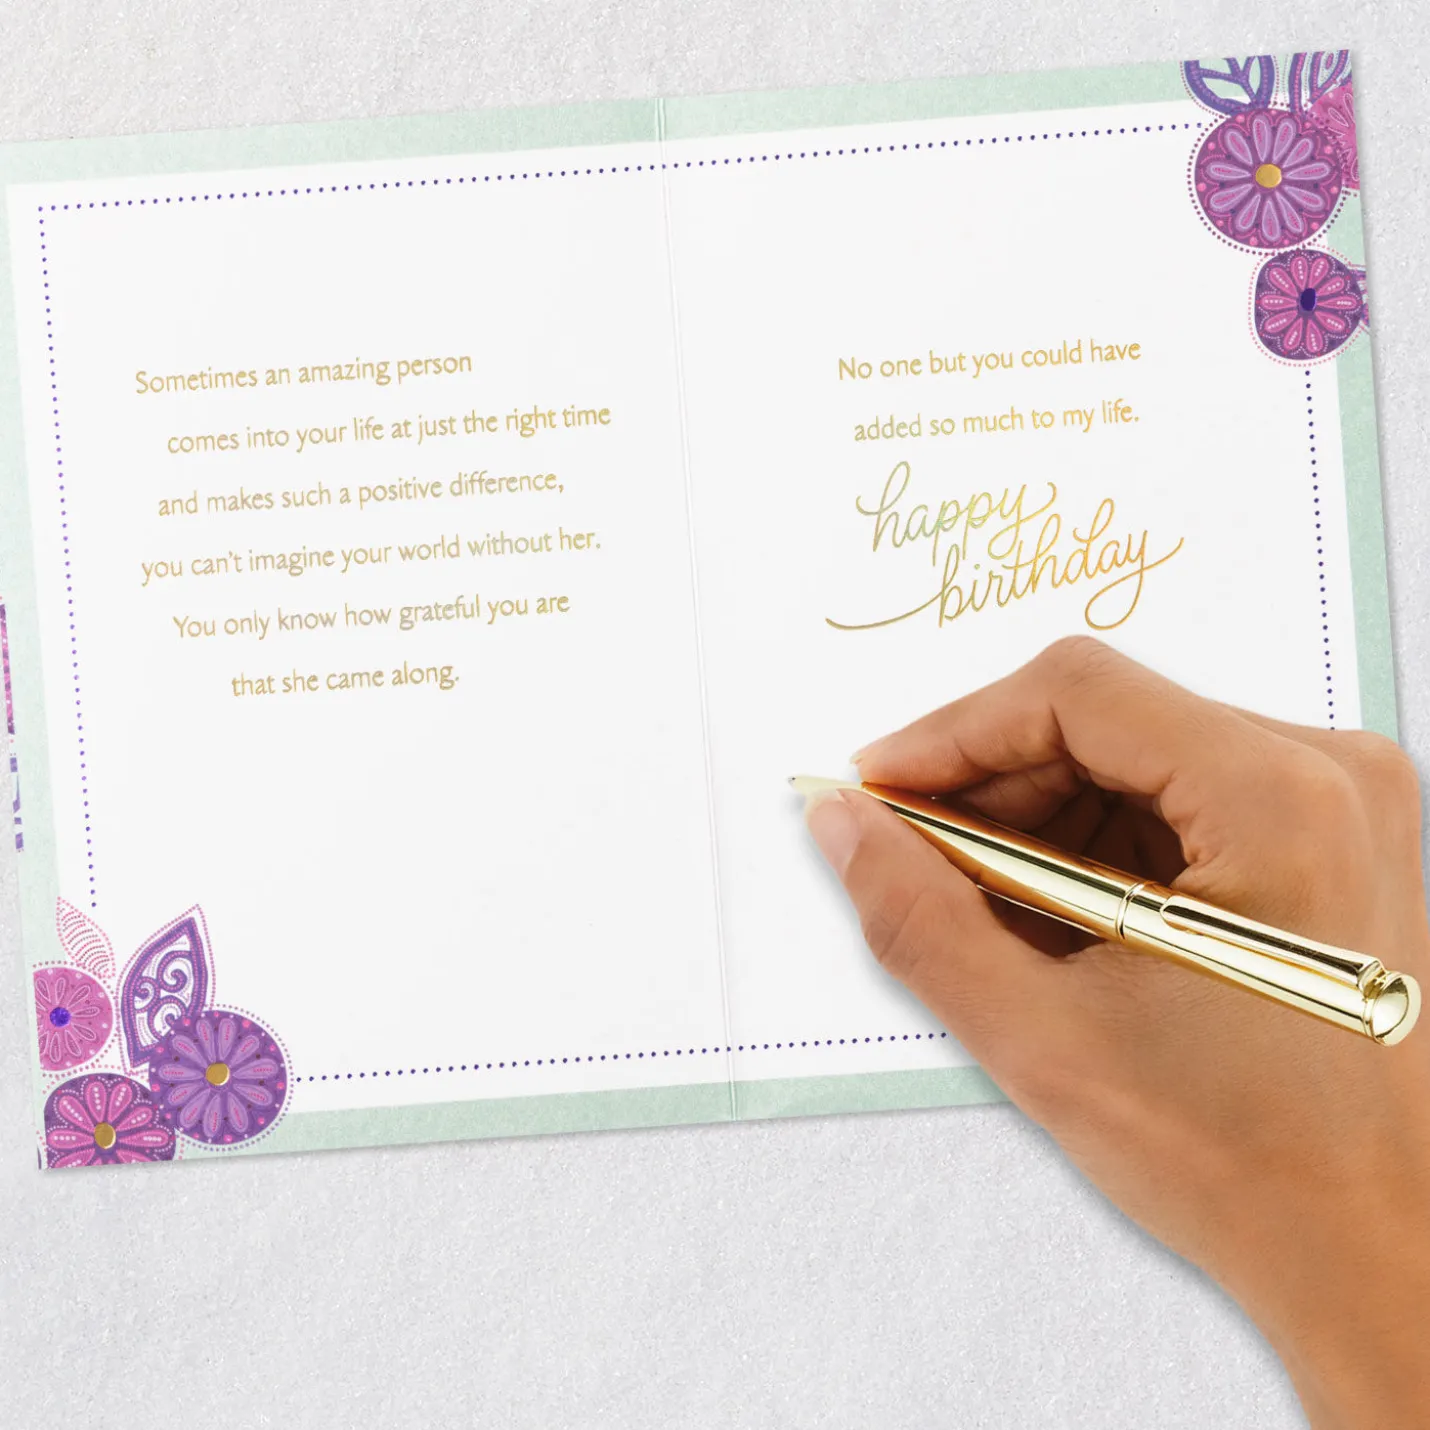 Sometimes an amazing person
comes into your life at just the right time
and makes such a positive difference,
you can't imagine your world without her.
You only know how grateful you are
that she came along.
No one but you could have
added so much to my life.
happy
birthday